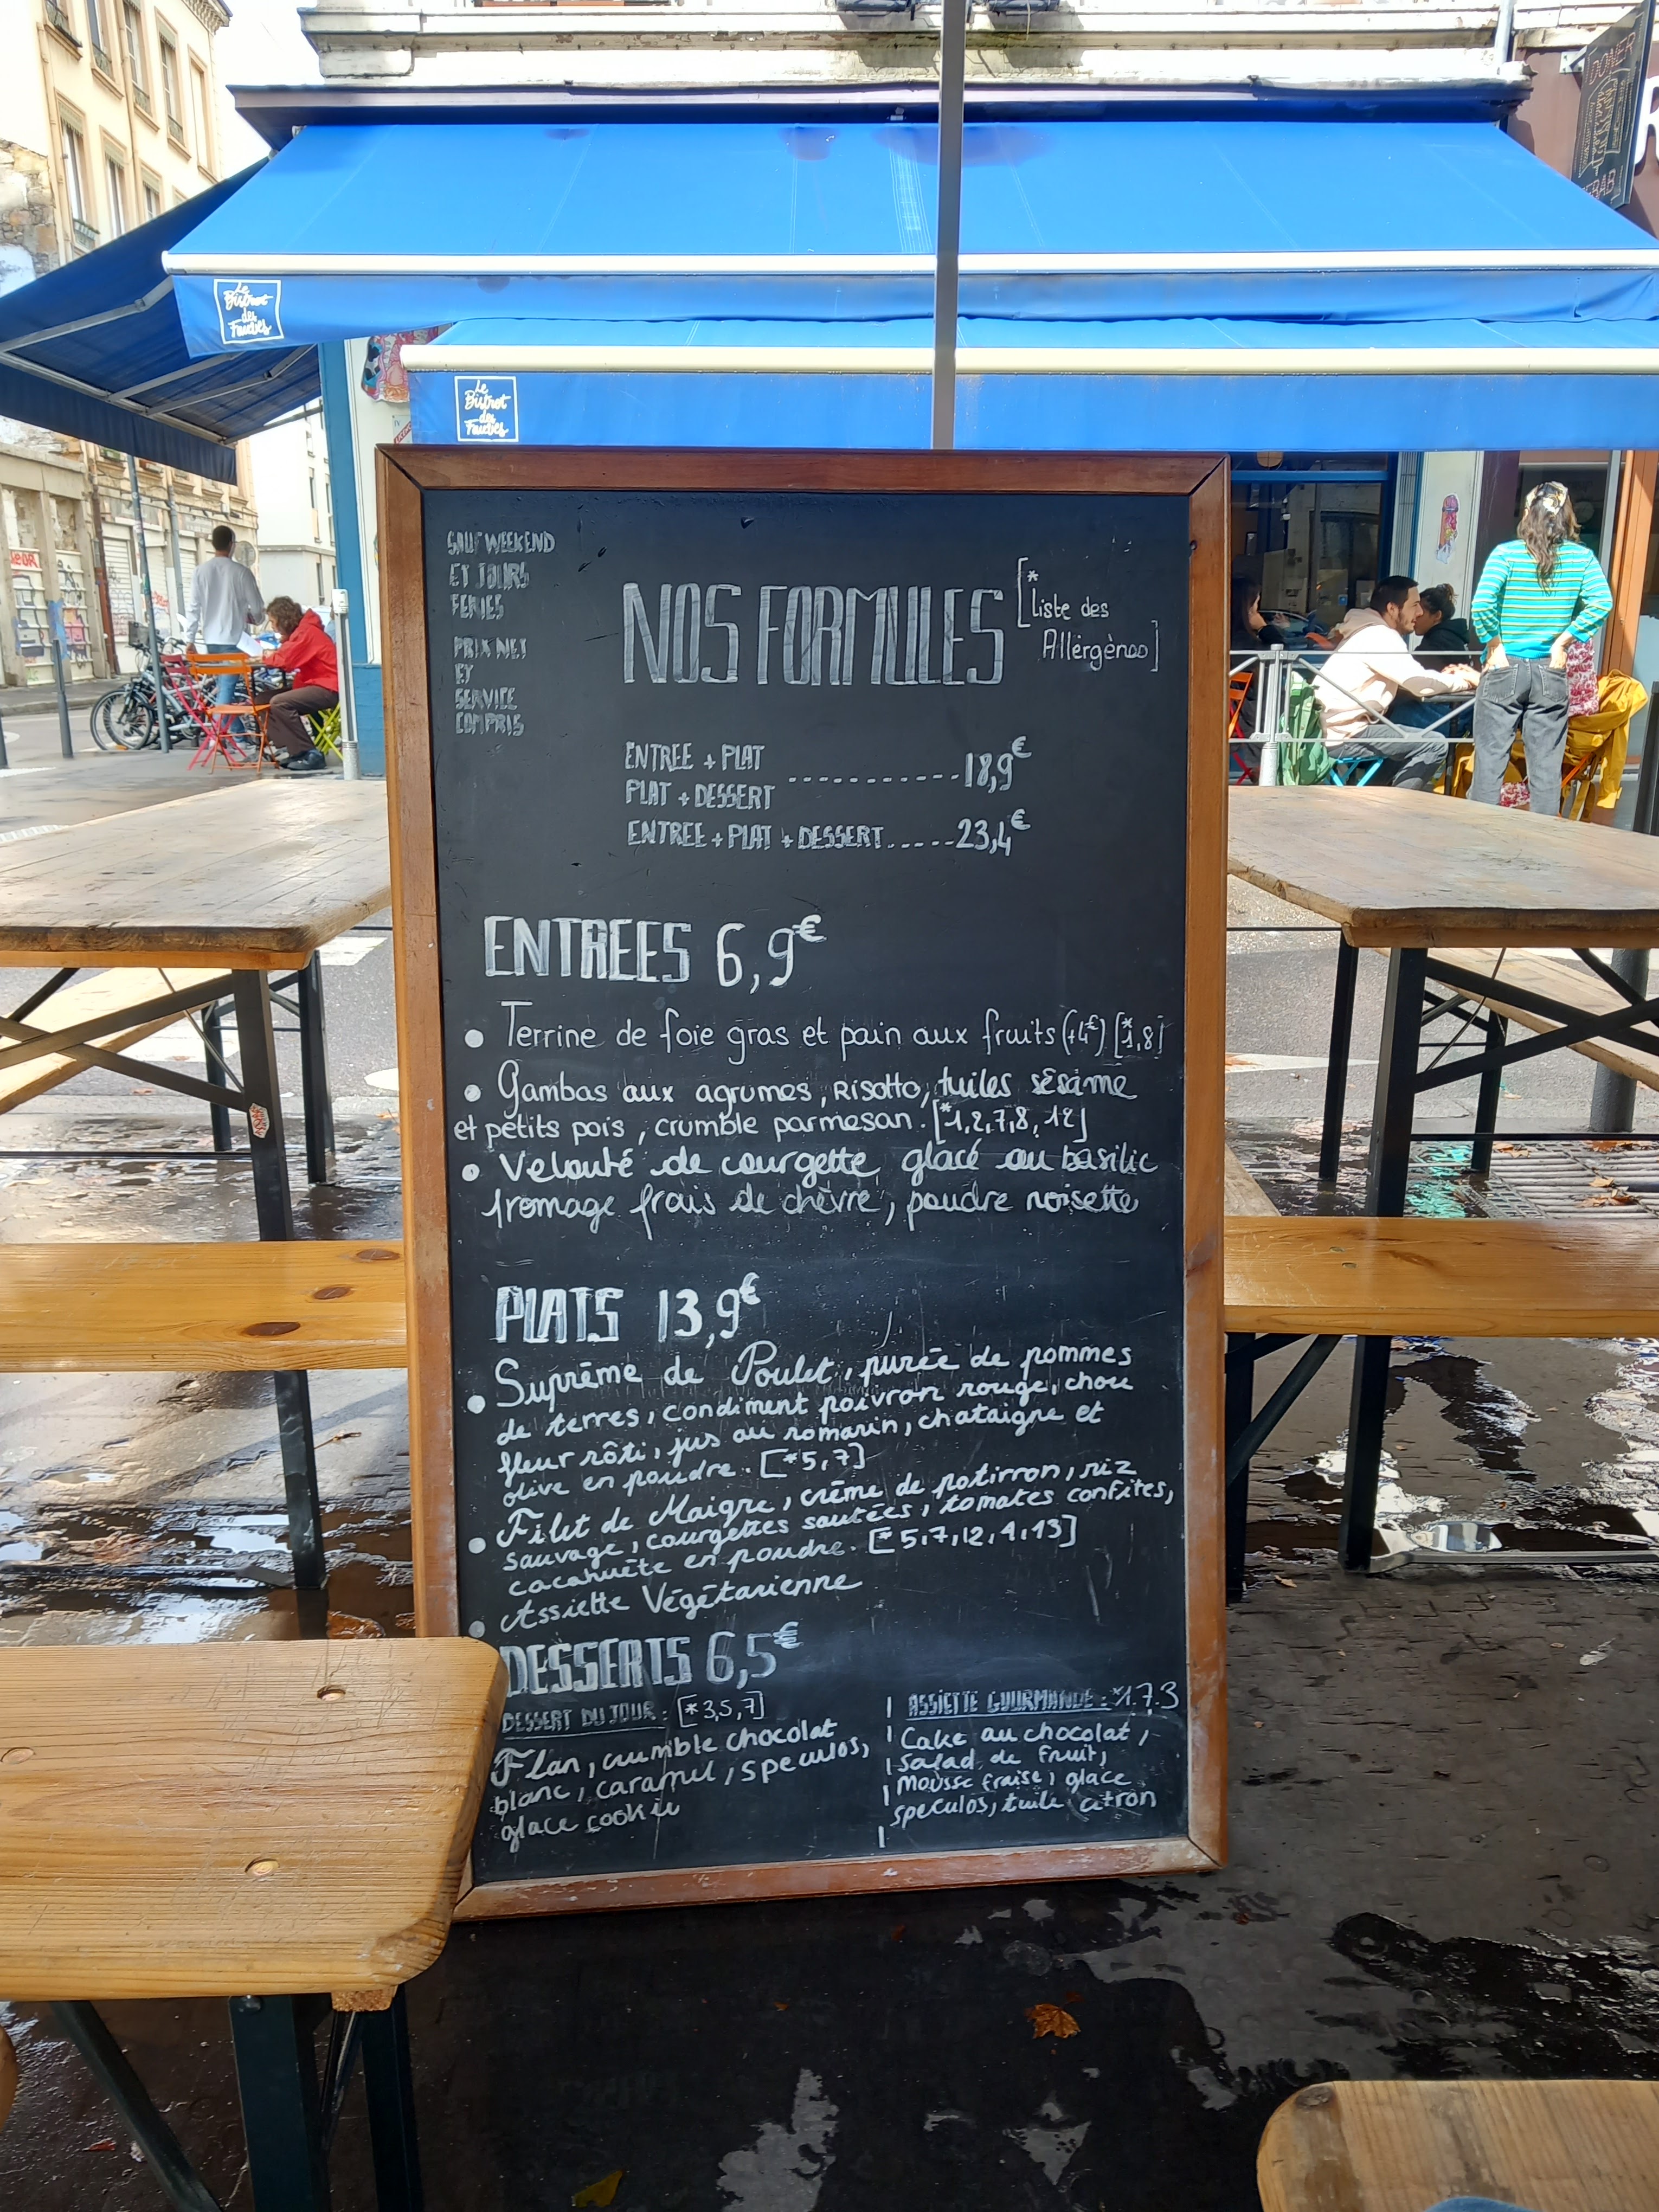 DONER
KEBAB
Le
Bistrot
des
Fauves
Le
Bistrot
des
Fauves
SAUF WEEKEND
ET JOURS
FERIES
PRIX NET
ET
SERVICE
COMPRIS
NOS FORMULES
[*
Liste des
Allergènes]
ENTREE + PLAT
PLAT + DESSERT ...........18,9€
ENTREE + PLAT + DESSERT.....23,4€
ENTREES 6,9€
• Terrine de foie gras et pain aux fruits (+4€) [*1,8]
• Gambas aux agrumes, Risotto, tuiles sésame
et petits pois, crumble parmesan. [*1,2,7,8,12]
• Velouté de courgette glacé au basilic
fromage frais de chèvre, poudre noisette
PLATS 13,9€
• Suprême de Poulet, purée de pommes
de terres, condiment poivron rouge, chou
fleur rôti, jus au romarin, chataigne et
olive en poudre. [*5,7]
• Filet de Maigre, crème de potirron, riz
sauvage, courgettes sautées, tomates confites,
cacahuète en poudre. [*5,7,12,4,13]
• Assiette Végétarienne
DESSERTS 6,5€
DESSERT DU JOUR : [*3,5,7]
Flan, crumble chocolat
blanc, caramel, speculos,
glace cookie
ASSIETTE GOURMANDE : *1.7.3
Cake au chocolat,
Salad de fruit,
mousse fraise, glace
speculos, tuile citron